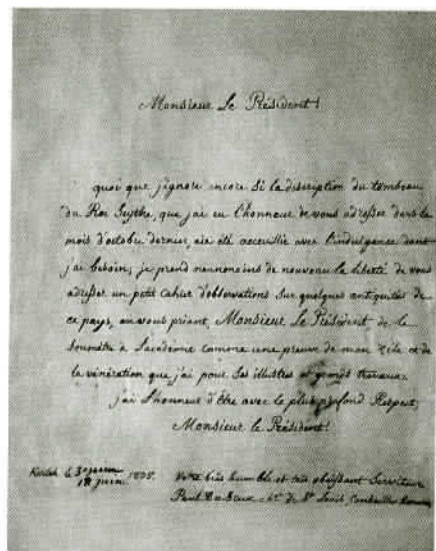 Monsieur Le Président!
quoi que j'ignore encore Si la discription du tombeau
du Roi Scythe, que j'ai eu l'honneur de vous adresser dans le
mois d'octobre dernier, aie été acceuillie avec l'indulgence dont
j'ai besoin; je prend neunmoins de nouveau la liberté de vous
adresser un petit Cahier d'observations Sur quelques antiquités de
ce pays, en vous priant, Monsieur Le Président de le
soumétre à l'acadèmie comme une preuve de mon Zéle et de
la vénération que j'ai pour Ses illustres et grands travaux.
j'ai l'honneur d'être avec le plus profond Respect,
Monsieur le Président!
Kertch le 30 juin
18 juin
Votre très humble et très obéissant Serviteur
Paul Du Brux. de St Louis